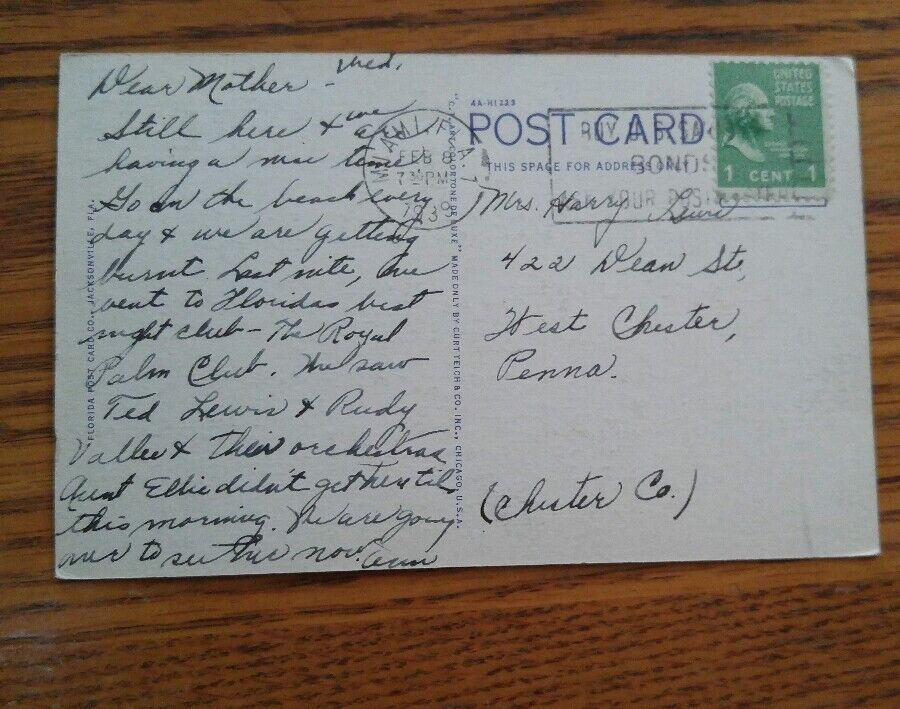 Dear Mother - Wed.
Still here & we are
having a nice time
Go on the beach every
day & we are getting
burnt. Last nite, we
went to Floridas best
night club - The Royal
Palm Club. We saw
Ted Lewis & Rudy
Vallee & their orchestras
Aunt Elsie didn't get here til
this morning. We are going
over to see her now. Ann
FLORIDA POST CARD CO., JACKSONVILLE, FLA.
"C. T. ART-COLORTONE DE LUXE" MADE ONLY BY CURT TEICH & CO., INC., CHICAGO, U.S.A.
4A-H1223
POST CARD
THIS SPACE FOR ADDRESS ONLY
MIAMI, FLA. 1
FEB 8
7 30 PM
1939
BUY U.S. SAVINGS
BONDS
ASK YOUR POSTMASTER
UNITED
STATES
POSTAGE
1 CENT 1
Mrs. Harry
422 Dean St,
West Chester,
Penna.
(Chester Co.)